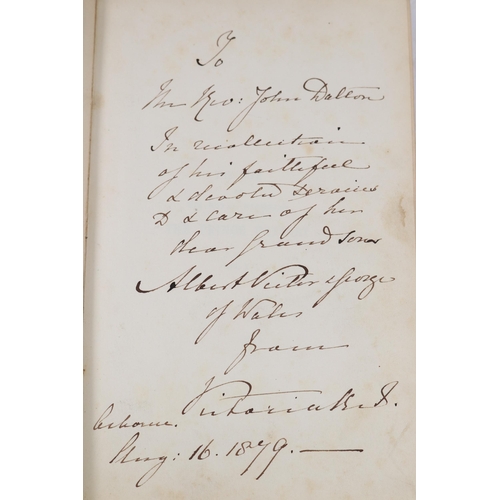 To
The Rev: John Dalton
In recollection
of his faithful
& devoted services
to & care of her
dear Grand sons
Albert Victor & George
of Wales
from
Victoria R. I.
Osborne.
Aug: 16. 1879. —